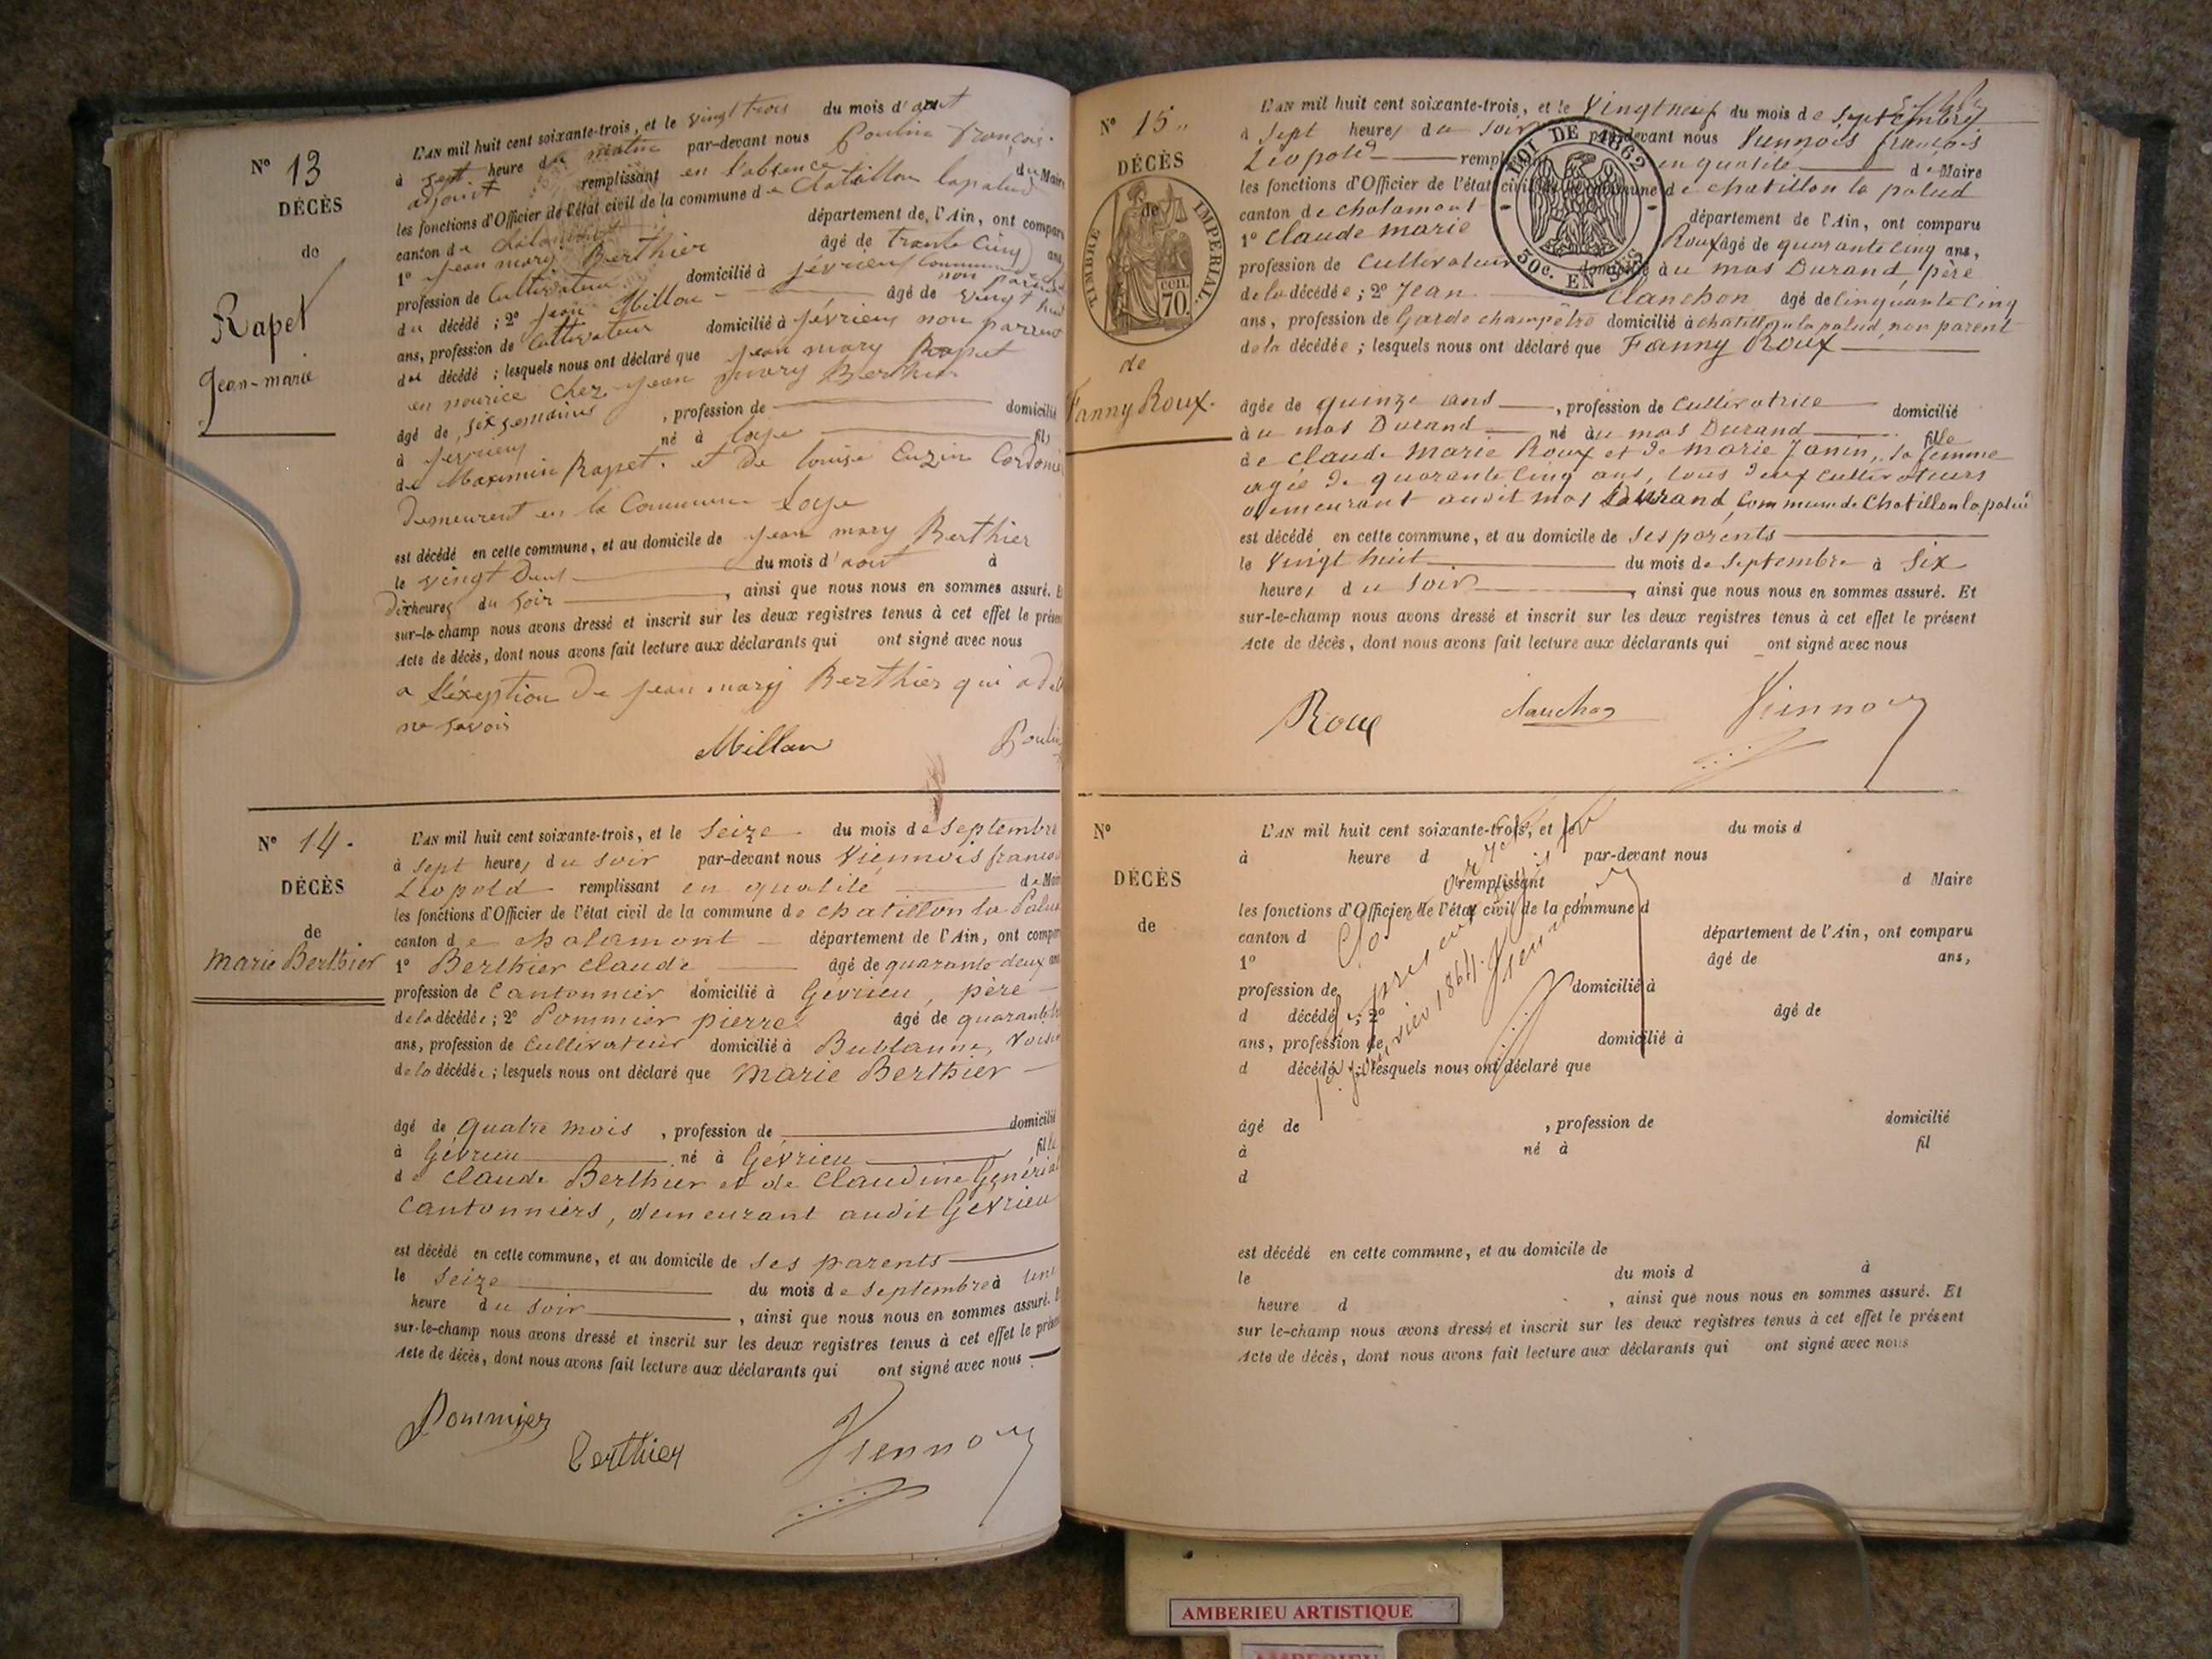 N° 13
DÉCÈS
de
Rapet
Jean-marie
L'AN mil huit cent soixante-trois, et le vingt trois du mois d'aout
à sept heure du matin par-devant nous Poulin françois
adjoint remplissant en l'absence du Maire
les fonctions d'Officier de l'état civil de la commune de Chatillon lapalud
canton de département de l'Ain, ont comparu
1° Jean mary Berthier âgé de trante Cinq ans
profession de Cultivateur domicilié à Jévrieux non parent
du décédé ; 2° Jean Millon âgé de vingt
ans, profession de Cultivateur domicilié à Jévrieux non parrent
du décédé ; lesquels nous ont déclaré que Jean mary Rapet
en nourice chez Jean mary Berthier
âgé de six semaines , profession de domicilié
à Jevrieux né à loye fils
de Maximin Rapet. et de louise Cuzin
Demeurent en la Commune loye
est décédé en cette commune, et au domicile de Jean mary Berthier
le vingt Deux du mois d'aout à
Dixheures du soir , ainsi que nous nous en sommes assuré. Et
sur-le-champ nous avons dressé et inscrit sur les deux registres tenus à cet effet le présent
Acte de décès, dont nous avons fait lecture aux déclarants qui ont signé avec nous
a l'éxeption de Jean mary Berthier qui a
ne savoir
Millon Poulin
N° 14.
DÉCÈS
de
Marie Berthier
L'AN mil huit cent soixante-trois, et le Seize du mois de Septembre
à Sept heures du Soir par-devant nous Viennois françois
Léopold remplissant en qualité de Maire
les fonctions d'Officier de l'état civil de la commune de chatillon la Palud
canton de chalamont département de l'Ain, ont comparu
1° Berthier claude âgé de quarante deux ans
profession de Cantonnier domicilié à Gevrieu, père
de la décédée ; 2° Pommier pierre âgé de quarante
ans, profession de Cultivateur domicilié à Bublanne, Voisin
de la décédée ; lesquels nous ont déclaré que Marie Berthier
âgé de quatre mois , profession de domicilié
à Gévrieu né à Gévrieu fille
de Claude Berthier et de Claudine
Cantonniers, demeurant audit Gévrieu
est décédé en cette commune, et au domicile de ses parents
le seize du mois de Septembre à
heure du soir , ainsi que nous nous en sommes assuré. Et
sur-le-champ nous avons dressé et inscrit sur les deux registres tenus à cet effet le présent
Acte de décès, dont nous avons fait lecture aux déclarants qui ont signé avec nous
Pommier
Berthier
Viennois
N° 15
DÉCÈS
de
TIMBRE IMPERIAL.
70. cen.
de
Fanny Roux.
L'AN mil huit cent soixante-trois, et le Vingtneuf du mois de Septembre
à Sept heures du Soir par-devant nous Viennois françois
Léopold remplissant en qualité de Maire
les fonctions d'Officier de l'état civil de la commune de chatillon la palud
canton de chalamont département de l'Ain, ont comparu
LOI DE 1862
50c. EN SUS
1° Claude marie Roux âgé de quarante cinq ans,
profession de Cultivateur domicilié au mas Durand, père
de la décédée ; 2° Jean Clanchon âgé de Cinquante Cinq
ans, profession de Garde champetre domicilié à chatillon la palud, non parent
de la décédée ; lesquels nous ont déclaré que Fanny Roux
âgée de quinze ans , profession de Cultivatrice domicilié
au mas Durand né au mas Durand fille
de Claude Marie Roux et de Marie Janin, sa femme
agée de quarante Cinq ans, tous deux Cultivateurs
demeurant audit mas Durand, Commune de Chatillon la palud
est décédé en cette commune, et au domicile de ses parents
le Vingt huit du mois de Septembre à Six
heures du Soir , ainsi que nous nous en sommes assuré. Et
sur-le-champ nous avons dressé et inscrit sur les deux registres tenus à cet effet le présent
Acte de décès, dont nous avons fait lecture aux déclarants qui ont signé avec nous
Roux Clanchon Viennois
N°
DÉCÈS
de
L'AN mil huit cent soixante-trois, et le du mois d
à heure d par-devant nous
remplissant d Maire
les fonctions d'Officier de l'état civil de la commune d
canton d département de l'Ain, ont comparu
1° âgé de ans,
profession de domicilié à
d décédé ; 2° âgé de
ans, profession de domicilié à
d décédé ; lesquels nous ont déclaré que
Clos
janvier 1864.
Viennois
âgé de , profession de domicilié
à né à fil
d
est décédé en cette commune, et au domicile de
le du mois d à
heure d , ainsi que nous nous en sommes assuré. Et
sur le-champ nous avons dressé et inscrit sur les deux registres tenus à cet effet le présent
Acte de décès, dont nous avons fait lecture aux déclarants qui ont signé avec nous
AMBERIEU ARTISTIQUE
AMBERIEU